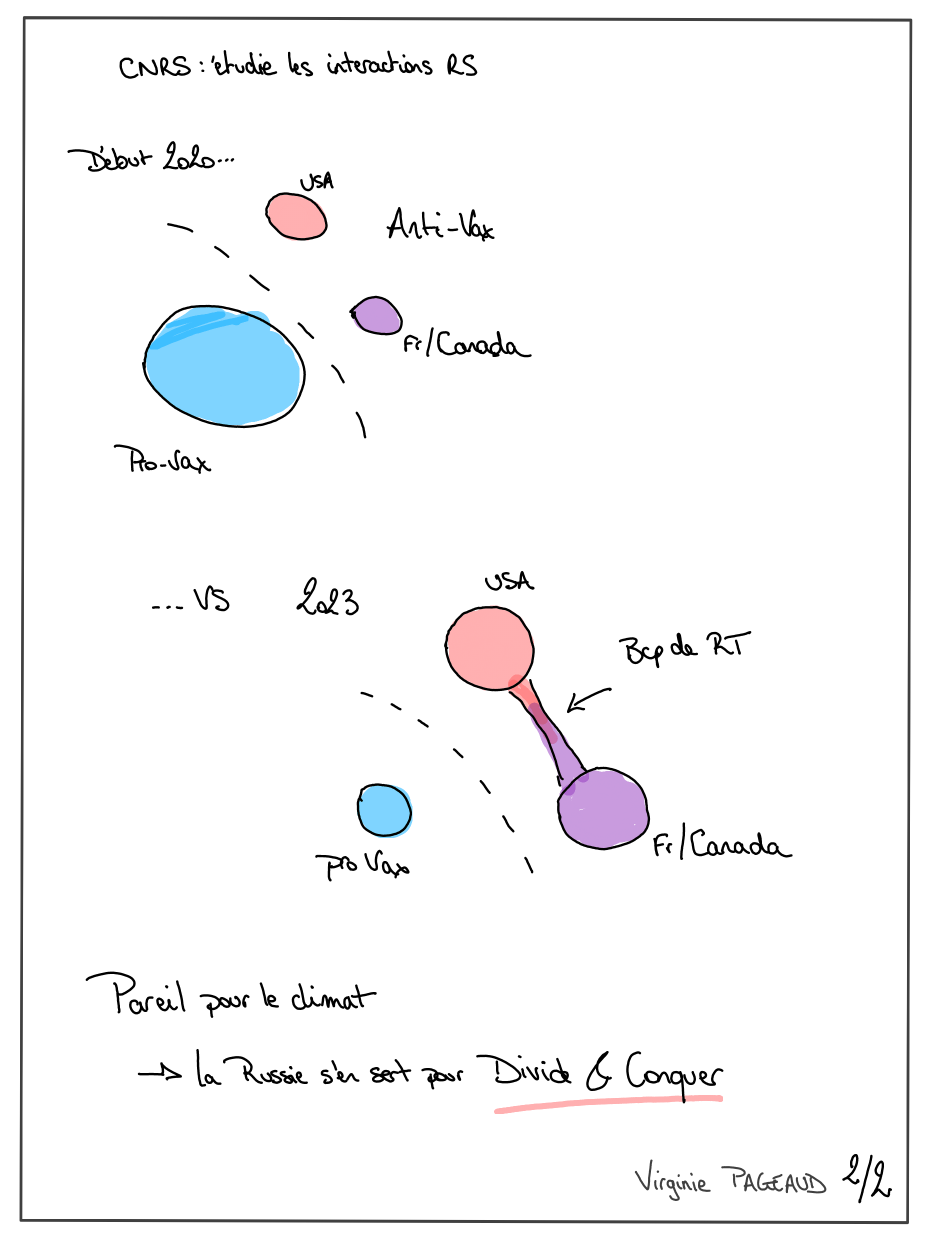 CNRS : étudie les interactions RS
Début 2020...
USA
Anti-Vax
Fr/Canada
Pro-Vax
... VS 2023
USA
Bcp de RT
Fr/Canada
pro Vax
Pareil pour le climat
→ la Russie s'en sert pour Divide & Conquer
Virginie PAGEAUD 2/2